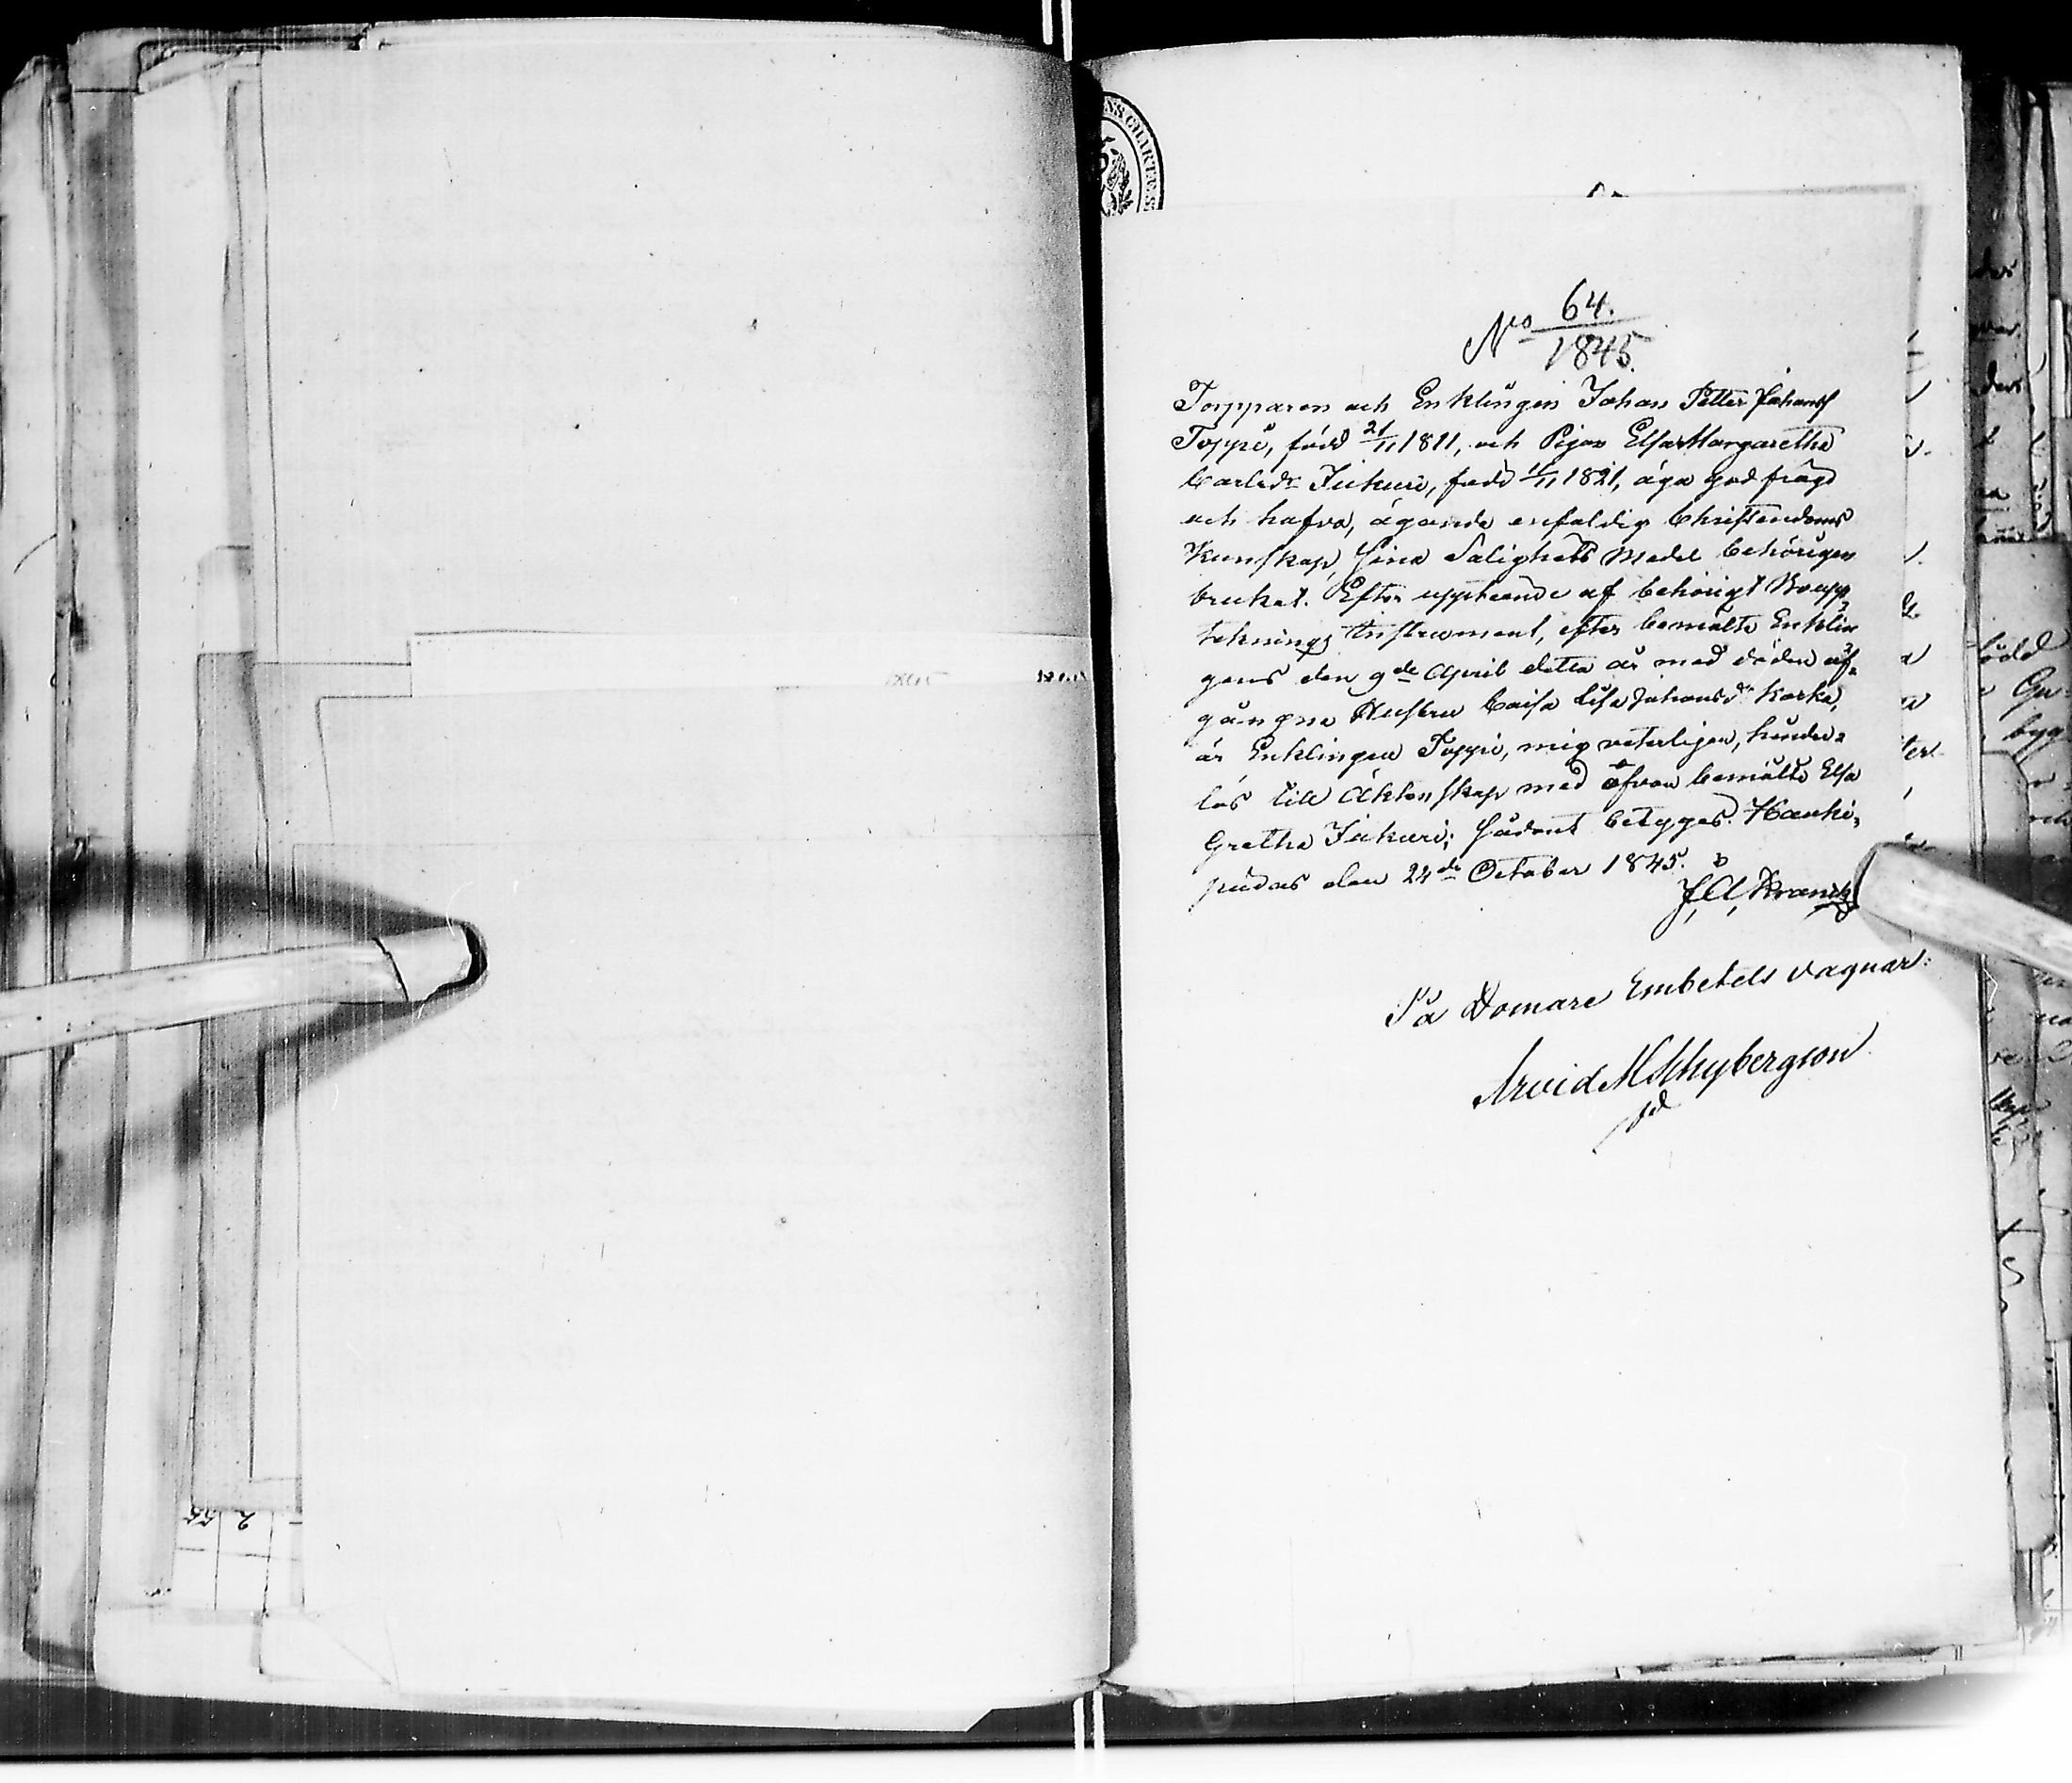 No 64.
1845.
Torpparen och Enklingen Johan Petter Johansf
Toppi, född 21/11 1811, och Pigan Elsa Margaretha
Carlsdr Jukuri, född 1/11 1821, äga god frägd
och hafva, ägande enfaldig Christendoms
Kunskap, sina Salighets Medel behörigen
brukat. Efter uppteende af behörigt Boupp
teknings Instrument, efter bemälte Enklin
gens den 9de April detta år med döden af=
gångna Hustru Caisa Lisa Johansdr Korka,
är Enklingen Toppi, mig veterligen, hinder=
lös till Äktenskap med ofvan bemälte Elsa
Gretha Jukuri; sådant betygas. Hauki=
pudas den 24de October 1845.
J, A, Kranck
På Domare Embetets vägnar:
Arvid M Schybergson